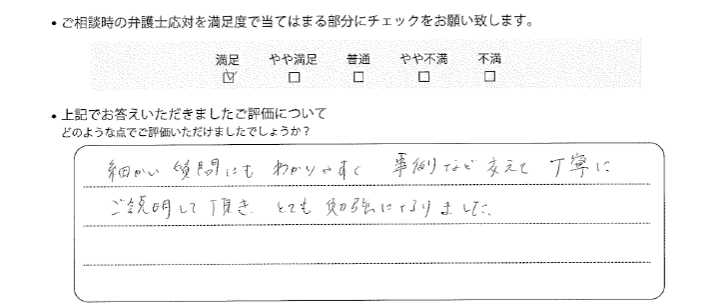 • ご相談時の弁護士応対を満足度で当てはまる部分にチェックをお願い致します。
満足 やや満足 普通 やや不満 不満
☑ □ □ □ □
• 上記でお答えいただきましたご評価について
どのような点でご評価いただけましたでしょうか？
細かい質問にも わかりやすく 事例など交えて 丁寧に
ご説明して頂き とても勉強になりました。